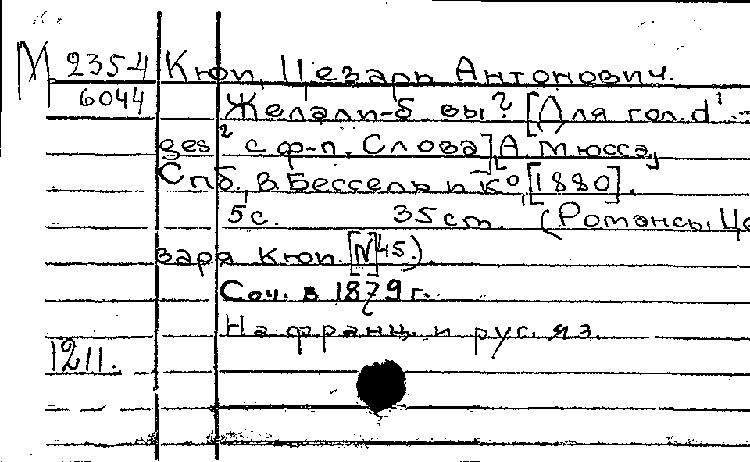 М 2354 Кюи, Цезарь Антонович.
6044 Желали-б вы? [Для гол. d¹-
ges² с ф-п. Слова] А. Мюссе,
Спб, В. Бессель и К° [1880].
5 с. 35 ст. (Романсы Це
заря Кюи. [N 45.)
Соч. в 1879 г.
На франц. и рус. яз.
1211.